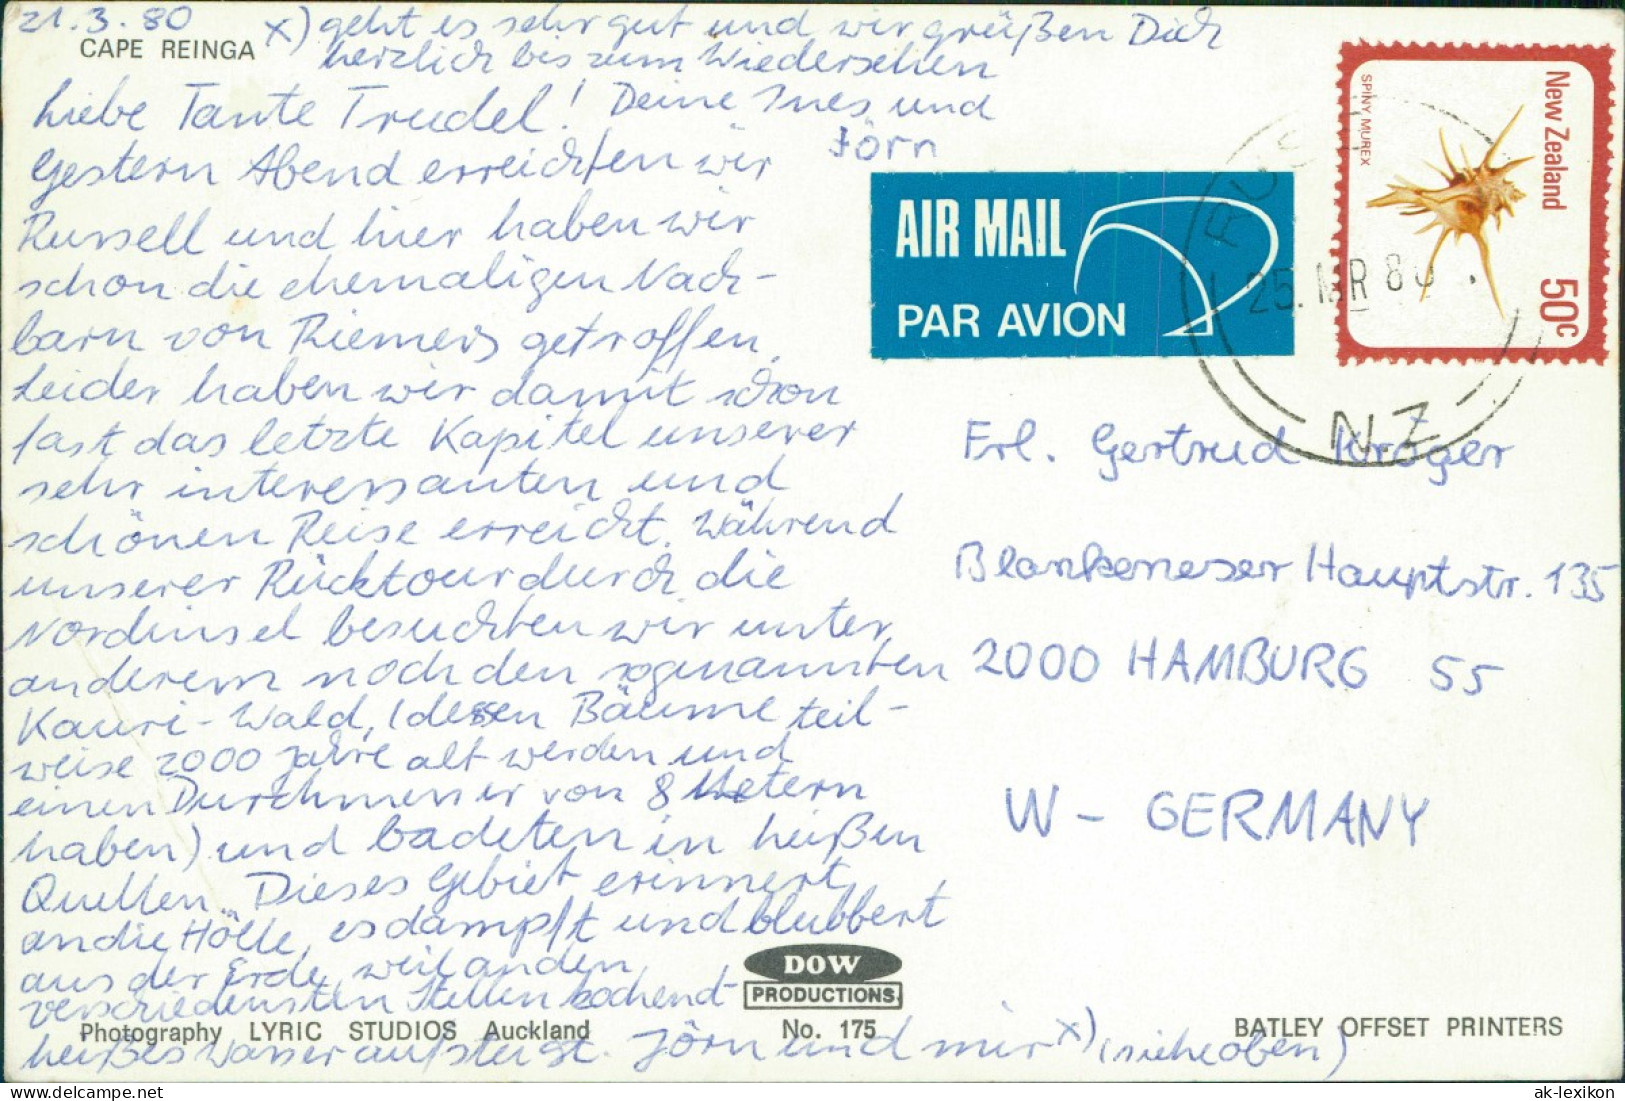 21.3.80
CAPE REINGA
x) geht es sehr gut und wir grüßen Dich
herzlich bis zum Wiedersehen
Deine Ines und
Jörn
Liebe Tante Trudel!
Gestern Abend erreichten wir
Russell und hier haben wir
schon die ehemaligen Nach-
barn von Riemers getroffen.
Leider haben wir damit schon
fast das letzte Kapitel unserer
sehr interessanten und
schönen Reise erreicht. Während
unserer Rücktour durch die
Nordinsel besuchten wir unter
anderem noch den sogenannten
Kauri-Wald, (dessen Bäume teil-
weise 2000 Jahre alt werden und
einen Durchmesser von 8 Metern
haben) und badeten in heißen
Quellen. Dieses Gebiet erinnert
an die Hölle, es dampft und blubbert
aus der Erde, weil an den
verschiedensten Stellen kochend-
heißes Wasser aufsteigt. Jörn und mir x) (siehe oben)
Photography LYRIC STUDIOS Auckland
DOW
PRODUCTIONS
No. 175
BATLEY OFFSET PRINTERS
AIR MAIL
PAR AVION
New Zealand
SPINY MUREX
50c
25. MR 80
N.Z.
Frl. Gertrud Kröger
Blankeneser Hauptstr. 135
2000 HAMBURG 55
W - GERMANY
ak-lexikon